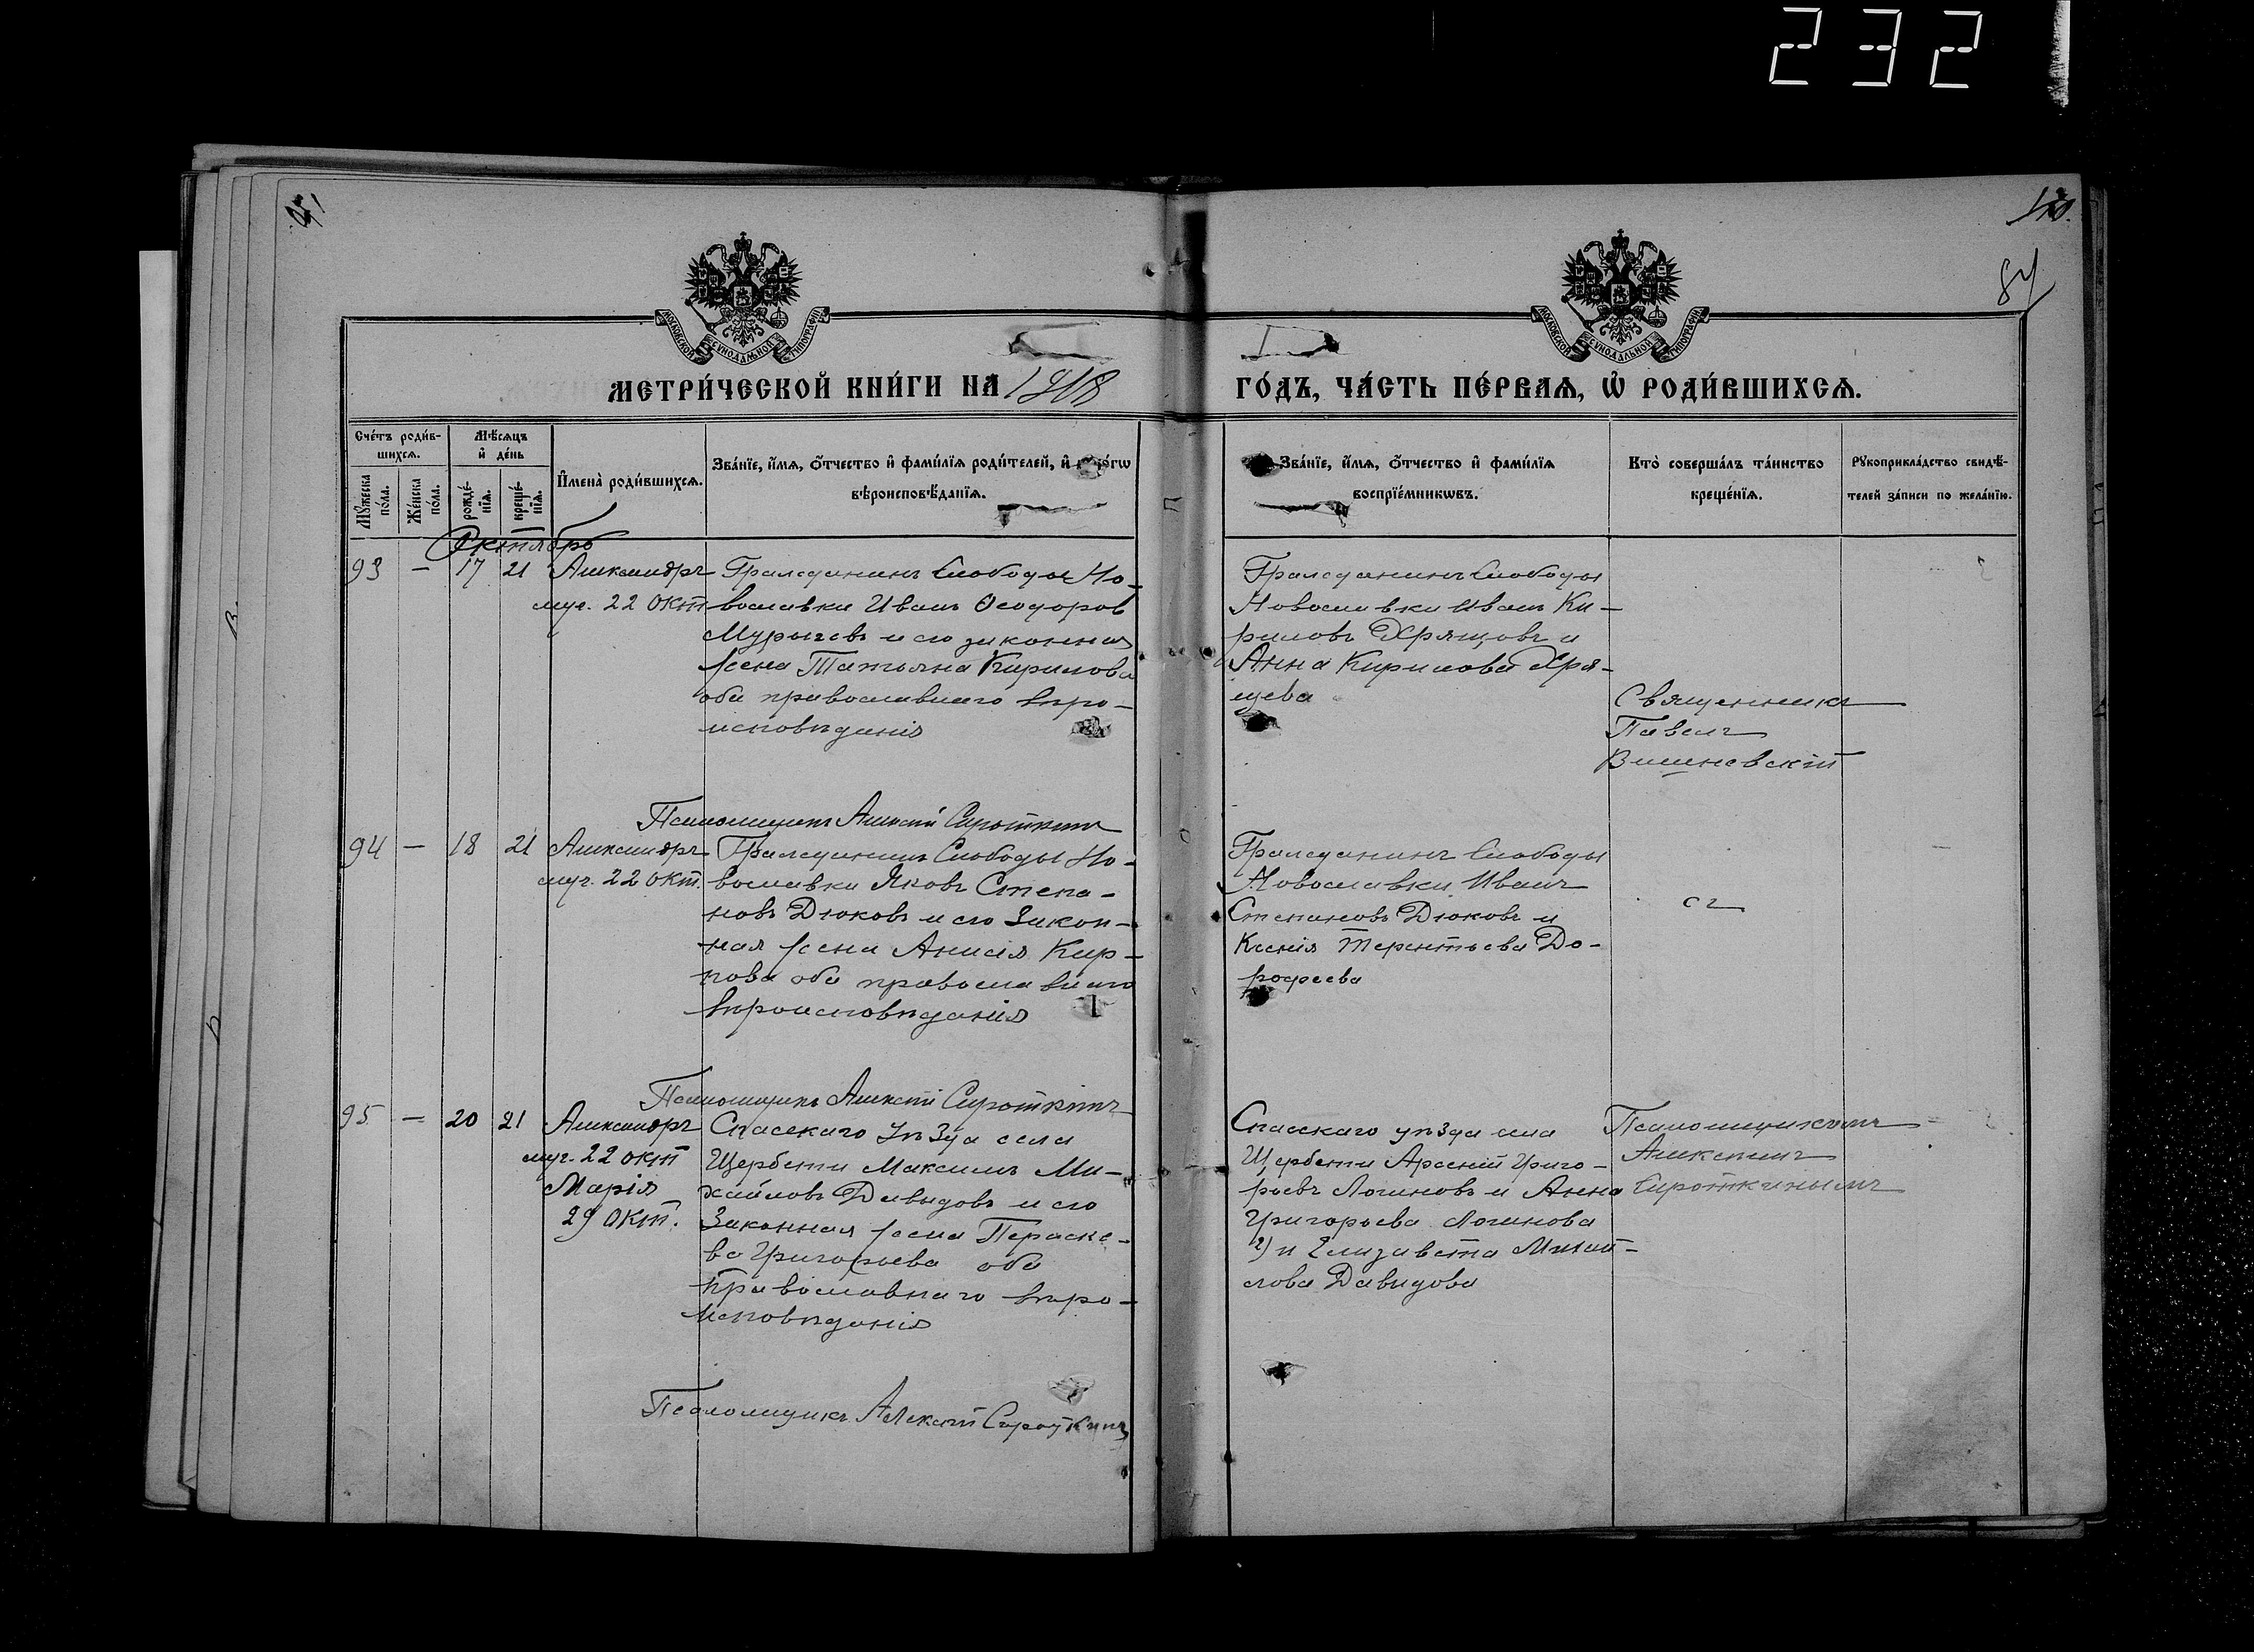 232
84
МОСКОВСКОЙ СѴНОДАЛЬНОЙ ТИПОГРАФІИ
МОСКОВСКОЙ СѴНОДАЛЬНОЙ ТИПОГРАФІИ
МЕТРИ́ЧЕСКОЙ КНИ́ГИ НА 1918
ГО́ДЪ, ЧА́СТЬ ПЕ́РВАѦ, Ѽ РОДИ́ВШИХСѦ.
Сче́тъ роди́в-
шихсѧ.
Мѣ́сѧцъ
и҆ де́нь
Мꙋ́жеска по́ла.
Же́нска по́ла.
рожде́-
нїѧ.
креще́-
нїѧ.
И҆мена̀ роди́вшихсѧ.
Зва́нїе, и҆́мѧ, ѻ҆́тчество и҆ фами́лїѧ роди́телей, и҆
вѣроисповѣ́данїѧ.
Зва́нїе, и҆́мѧ, ѻ҆́тчество и҆ фами́лїѧ
воспрїе́мникѡвъ.
Кто̀ соверша́лъ та́инство
креще́нїѧ.
Рꙋкоприкла́дство свидѣ́-
телей за́писи по жела́нїю.
Октябрь
93 – 17 21 Александръ
муч. 22 окт
Гражданинъ Слободы Но-
вославки Иванъ Ѳеодоров
и его законная
жена Татьяна Кирилова
оба православнаго вѣро-
исповѣданія
Гражданинъ Слободы
Новославки Иванъ Ки-
риловъ Хрящовъ и
Анна Кирилова Хря-
щева
Священникъ
Павелъ
Вишневскій
Псаломщикъ Алексѣй Сироткинъ
94 – 18 21 Александръ
муч. 22 окт.
Гражданинъ Слободы Но-
вославки Яковъ Степа-
новъ Дюковъ и его Закон-
ная жена Анисія Кир-
пова оба православнаго
вѣроисповѣданія
Гражданинъ Слободы
Новославки Иванъ
Степановъ Дюковъ и
Ксенія Терентьева До-
рофеева
съ
Псаломщикъ Алексѣй Сироткинъ
95 – 20 21 Александръ
муч. 22 окт
Марія
29 окт.
Спасскаго уѣзда села
Щербети Максимъ Ми-
хайловъ Давыдовъ и его
Законная жена Параске-
ва Григорьева оба
православнаго вѣро-
исповѣданія
Спасскаго уѣзда села
Щербети Арсеній Григо-
рьевъ Логиновъ и Анна
Григорьева Логинова
2) и Елизавета Михай-
лова Давидова
Псаломщикомъ
Алексѣемъ
Сироткинымъ
Псаломщикъ Алексѣй Сироткинъ